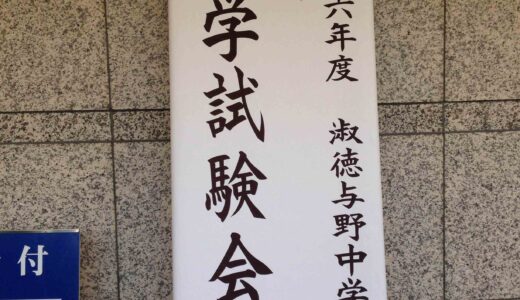 六年度 淑徳与野中学
学試験会
付